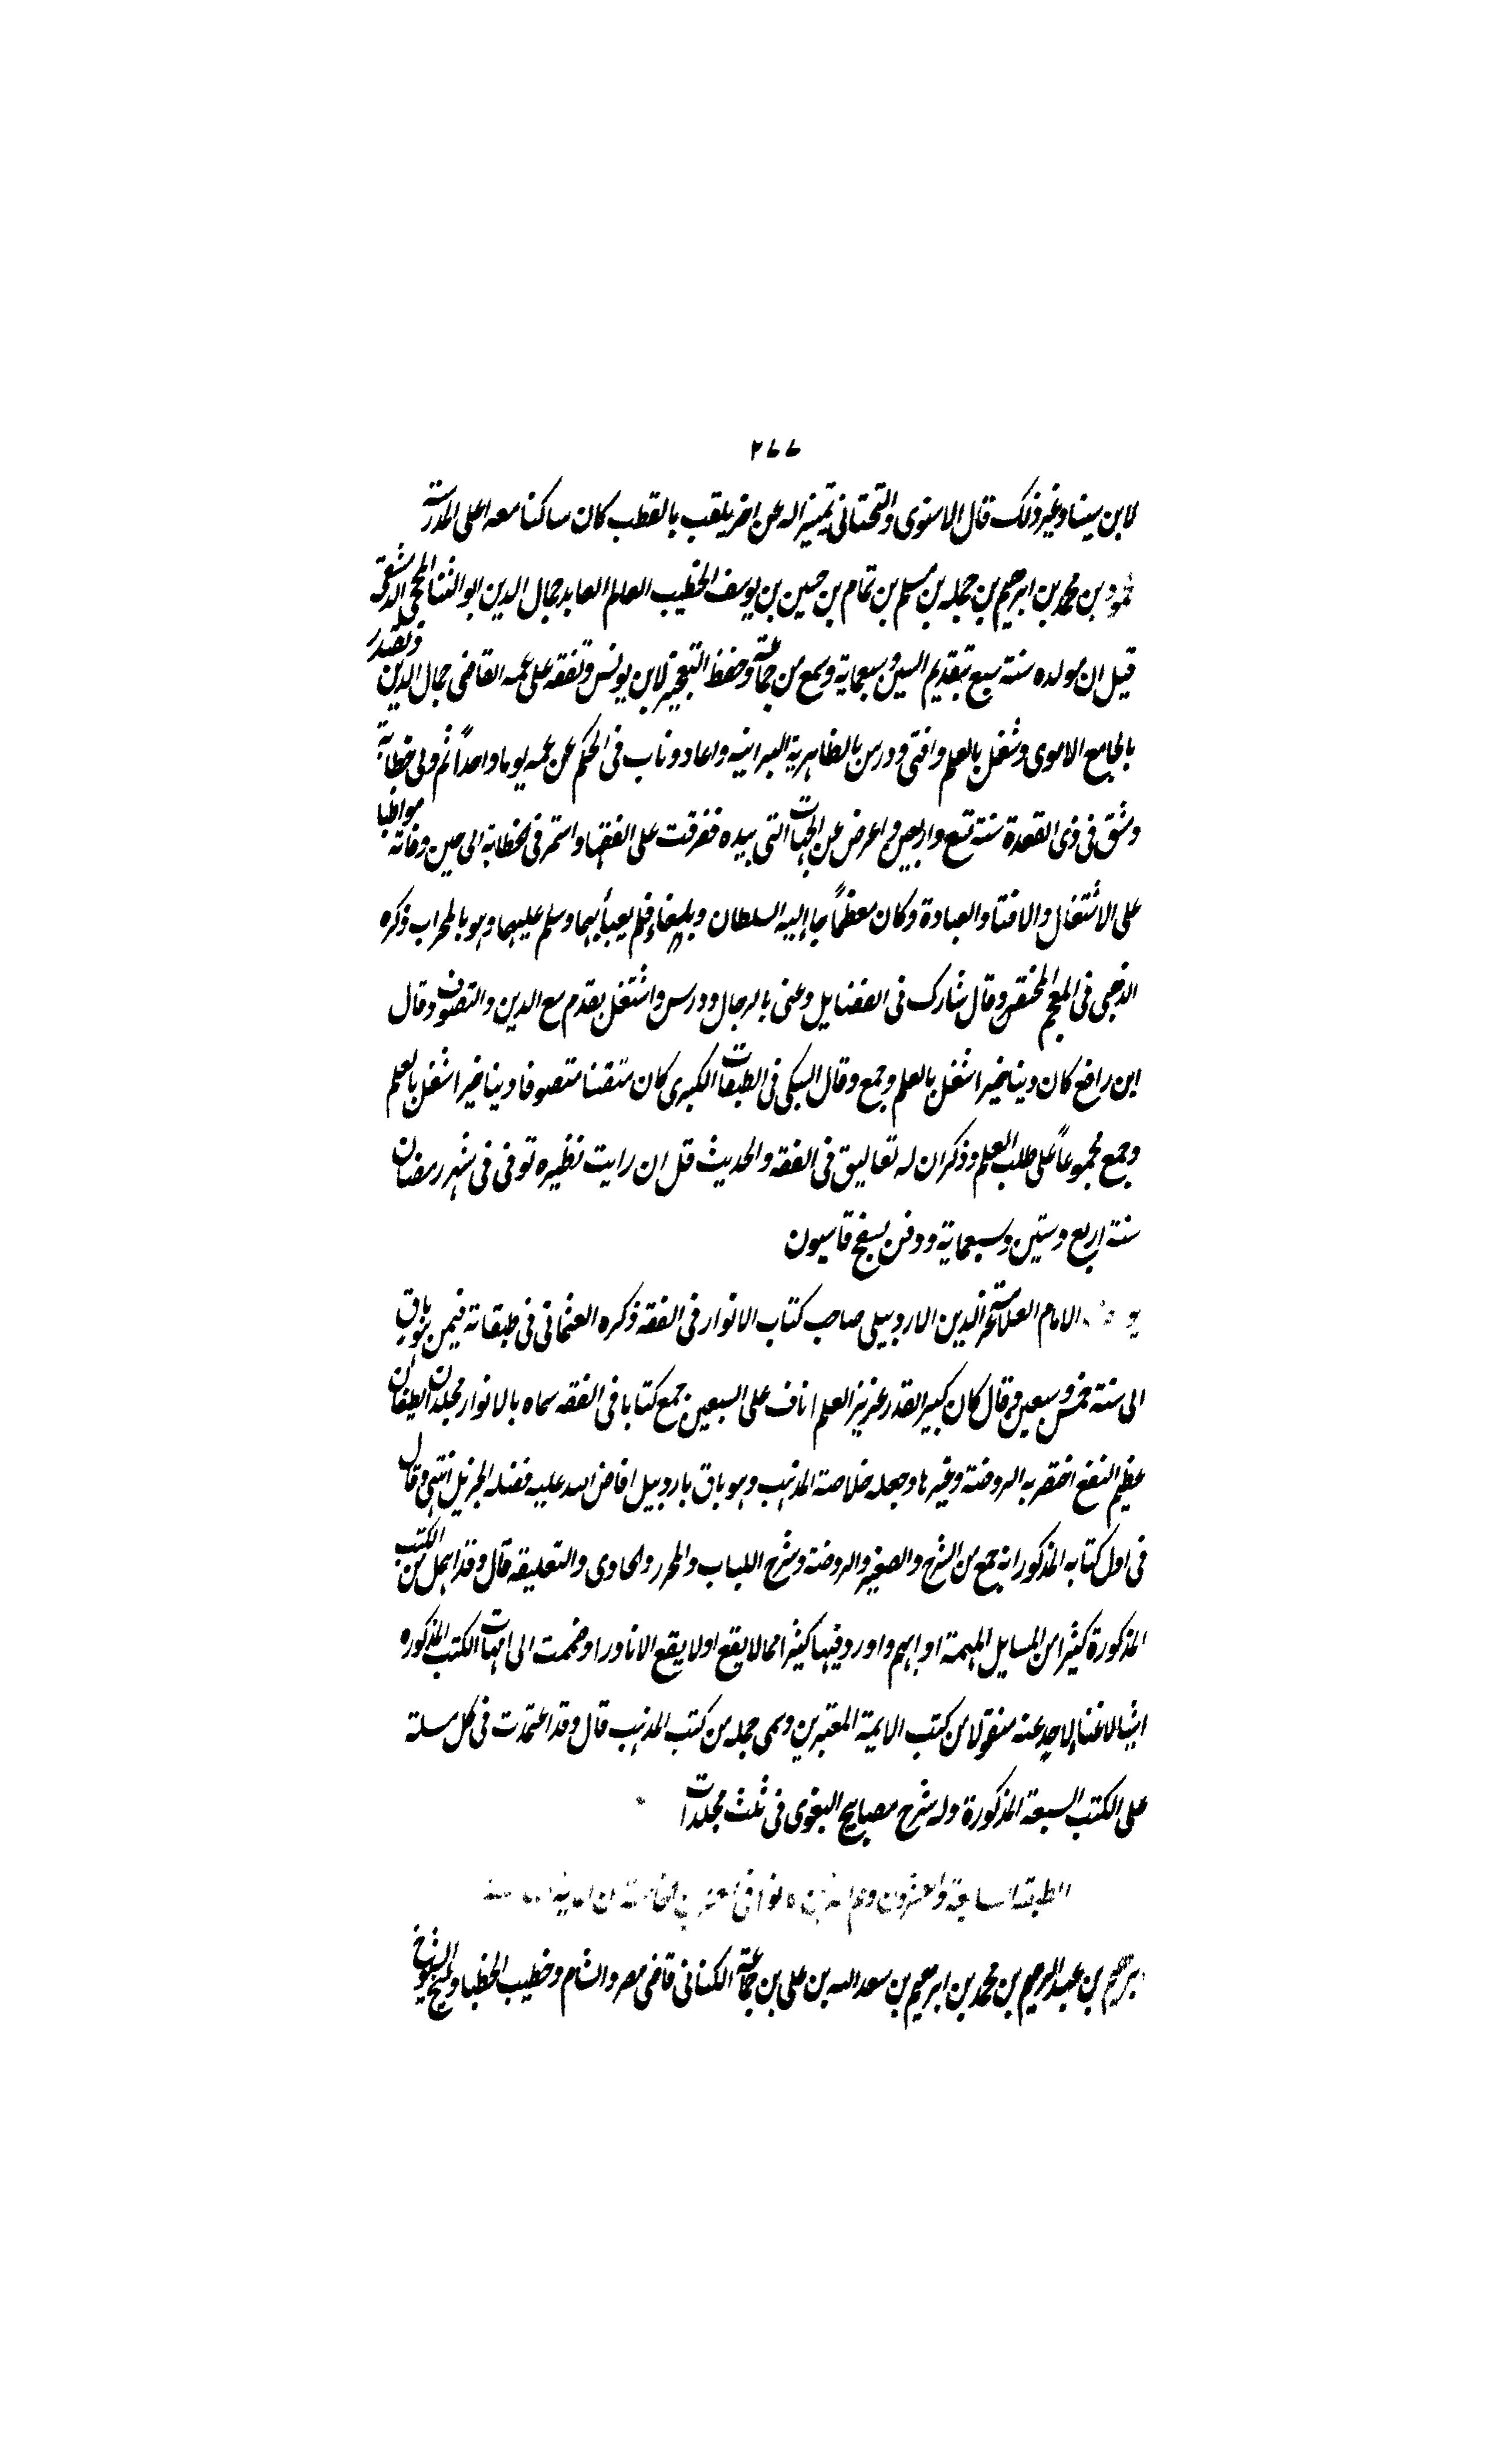 ٢٧٧
لابن سينا وغير ذلك قال الاسنوى والتحتانى تمييزا له عن اخر يلقب بالقطب كان ساكنا معه اعلى المدرسة
محمود بن محمد بن ابرهيم بن جملة بن مسلم بن تمام بن حسين بن يوسف الخطيب العالم العابد جمال الدين ابو الثنا المحجى الدمشقى
قيل ان مولده سنة سبع بتقديم السين وسبعماية وسمع من جماعة وحفظ التعجيز لابن يونس وتفقه على عمه القاضى جمال الدين وتصدر
بالجامع الاموى وشغل بالعلم وافتى ودرس بالظاهرية البرانيه واعاد وناب فى الحكم عن عمه يوما واحداً ثم ولى خطابة
دمشق فى ذى القعدة سنة تسع واربعين واعرض عن الجهات التى بيده ففرقت على الفقها واستمر فى الخطابة الى حين وفاته مواظبا
على الاشتغال والافتا والعبادة وكان معظماً جا إليه السلطان ويلبغا فلم يعبأ بهما وسلم عليهما وهو بالمحراب ذكره
الذهبى فى المعجم المختص وقال شارك فى الفضايل وعنى بالرجال ودرس واشتغل بقدم مع الدين والتصون وقال
ابن رافع كان دينا خيرا شغل بالعلم وجمع وقال السبكى فى الطبقات الكبرى كان متقنا متصوفا دينا خيرا شغل بالعلم
وجمع مجموعاً على طلب العلم وذكر ان له تعاليق فى الفقه والحديث قل ان رايت نظيره توفى فى شهر رمضان
سنة اربع وستين وسبعماية ودفن بسفح قاسيون
الامام العلامة عز الدين الاردبيلى صاحب كتاب الانوار فى الفقه ذكره العثمانى فى طبقاته فيمن هو باق
الى سنة خمس وسبعين وقال كان كبير القدر غزيز العلم اناف على السبعين جمع كتابا فى الفقه سماه بالانوار مجلدان لطيفان
عظيم النفع اختصر به الروضة وغيرها وجعله خلاصة المذهب وهو باق باردبيل افاض الله عليه فضله الجزيل انتهى وقال
فى اول كتابه المذكور انه جمع من الشرح والصغير والروضة وشرح اللباب والمحرر والحاوى والتعليقه قال وقد اهمل من الكتب
المذكورة كثيرا من المسايل المهمة او ابهم واورد فيها كثيرا مما لا يقع او لا يقع الا نادرا وضممت الى امهات الكتب المذكوره
اشيا لا غنا لاحد عنه منقولا من كتب الايمة المعتبرين وسمى جملة من كتب المذهب قال وقد اعتمدت فى كل مسلة
على الكتب السبعة المذكورة وله شرح مصابيح البغوى فى ثلث مجلدات
الطبقة السابعة والعشرون وهم الذين كانوا فى العشرين الخامسة من الماية
ابرهيم بن عبد الرحيم بن محمد بن ابرهيم بن سعد الله بن على بن جماعة الكنانى قاضى مصر والشام وخطيب الخطبا وشيخ الشيوخ